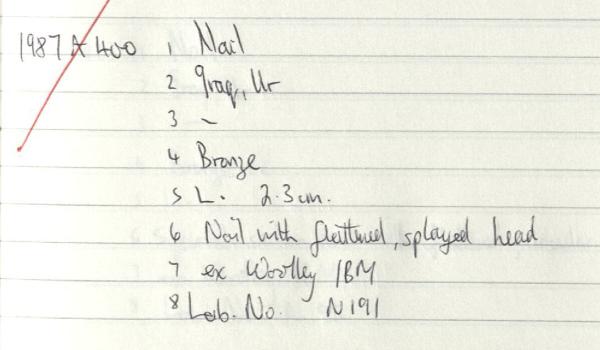 1987 A 400 1 Nail
2 Iraq, Ur
3 –
4 Bronze
5 L. 2.3cm.
6 Nail with flattened, splayed head
7 ex Woolley /BM
8 Lab. No. N191